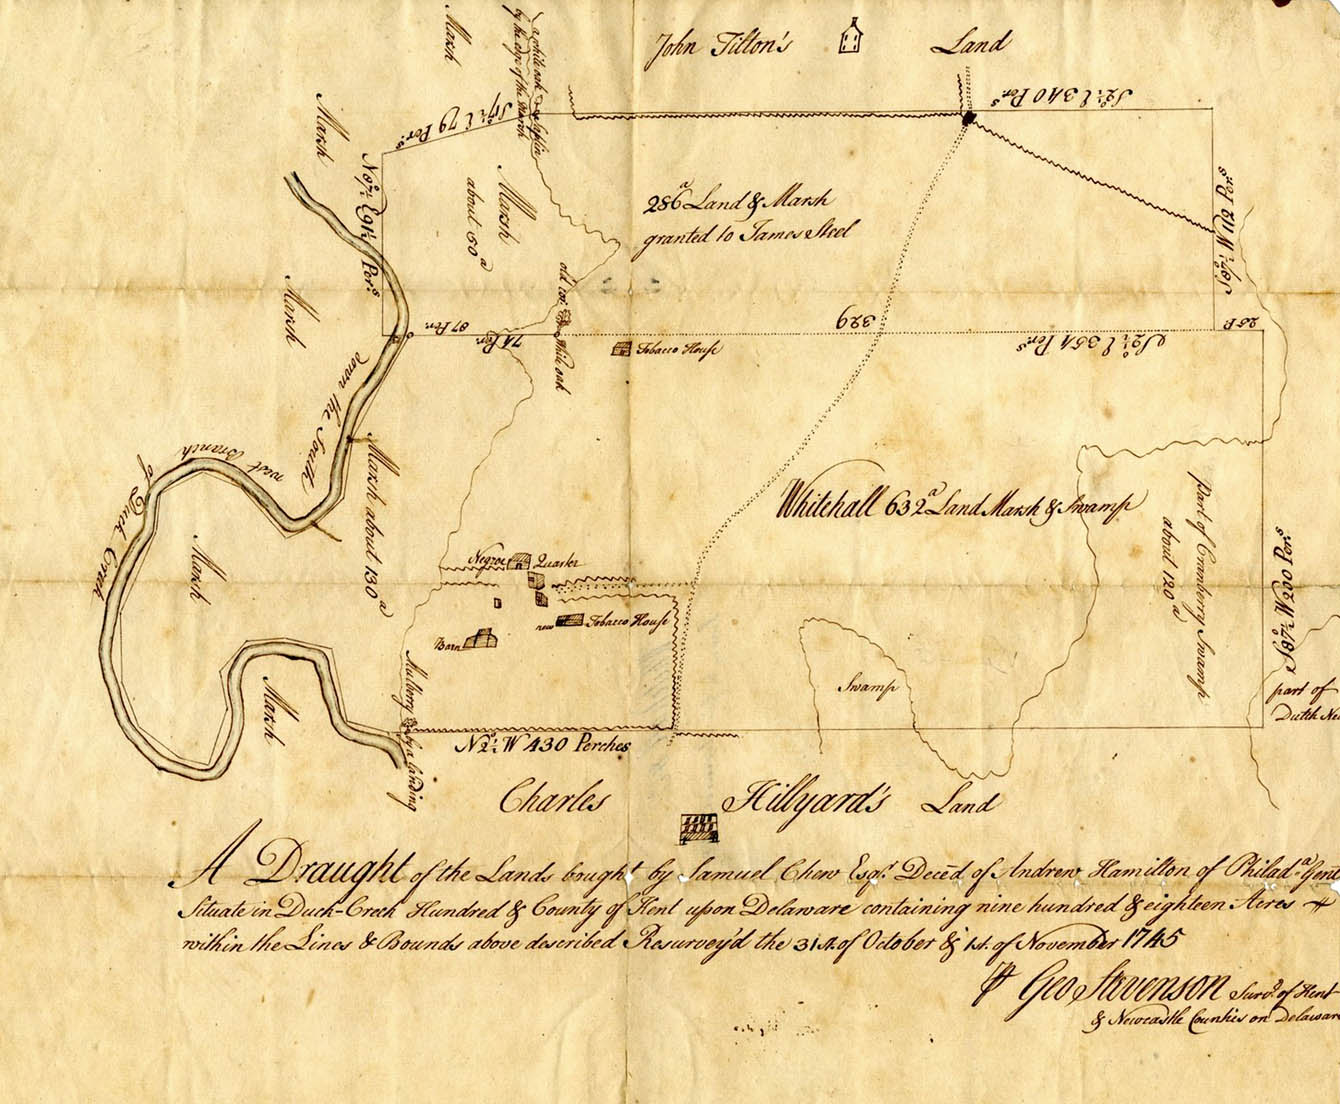 John Tilton's Land
Marsh
a white oak
by the edge of the Marsh
S 2½ E 340 Per.s
E 79 Per.s
Marsh
Marsh
about 50 a
286 a Land & Marsh
granted to James Steel
W 112 Per.s
Per.s
Marsh
old cor. white oak
87 Per.
74 Per.
329
S 2½ E 354 Per.s
25 P
Tobacco House
down the South west Branch of Duck Creek
Marsh about 130 a
Whitehall 632 a Land Marsh & Swamp
Part of Cranberry Swamp
about 120 a
S 87½ W 200 Per.s
Marsh
Negroe Quarter
new Tobacco House
Barn
Marsh
Mulberry by a landing
Swamp
part of
Dutch
N 2½ W 430 Perches
Charles Hillyard's Land
A Draught of the Lands bought by Samuel Chew Esqr. Decēd of Andrew Hamilton of Philad.a Gent
Situate in Duck-Creek Hundred & County of Kent upon Delaware containing nine hundred & eighteen Acres
within the Lines & Bounds above described Resurvey'd the 31st. of October & 1st. of November 1745
Geo Stevenson Surv.r of Kent
& Newcastle Counties on Delaware